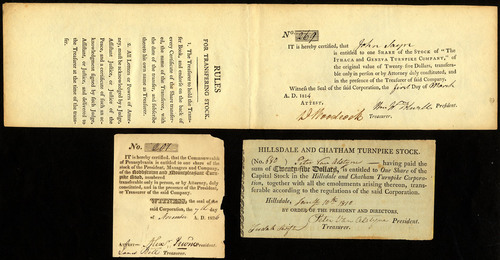 RULES
FOR TRANSFERRING STOCK.
1. The Transferer to hold the Transfer Book, and endorse on the back of every Certificate of the Share transferred, the name of the Transferee, with the date of the transfer, and subscribe thereto his own name as Transferer.
2. All Letters or Powers of Attorney, must be acknowledged by a Judge, Assistant Justice, or Justice of the Peace, and a certificate of such acknowledgment signed by such Judge, Assistant, or Justice, and delivered to the Transferer at the time of the transfer.
No. 269
IT is hereby certified, that John Sayre
is entitled to one SHARE of the STOCK of "THE
ITHACA AND GENEVA TURNPIKE COMPANY,"
of the original value of Twenty five Dollars, transferable only in person or by Attorney duly constituted, and
in the presence of the Treasurer of said Company.
Witness the Seal of the said Corporation, the first Day of March
A. D. 1814
ATTEST,
President.
Treasurer.
No. 601
IT is hereby certified, that the Commonwealth
of Pennsylvania is entitled to one share of the
stock of the President, Managers and Company,
of the Robbstown and Mountpleasant Turnpike
Road, numbered
transferable only in person, or by Attorney, duly
constituted, and in the presence of the President,
or Treasurer of the said company.
WITNESS, the seal of the
said Corporation, the 7th day
of November A. D. 1820
President
Treasurer.
HILLSDALE AND CHATHAM TURNPIKE STOCK.
(No. 680) Peter Van Alstyne —, having paid the
sum of Twenty-five Dollars, is entitled to One Share of the
Capital Stock in the Hillsdale and Chatham Turnpike Corporation, together with all the emoluments arising thereon, transferable according to the regulations of the said Corporation.
Hillsdale, Jany 10th 1810
BY ORDER OF THE PRESIDENT AND DIRECTORS,
President.
Treasurer.